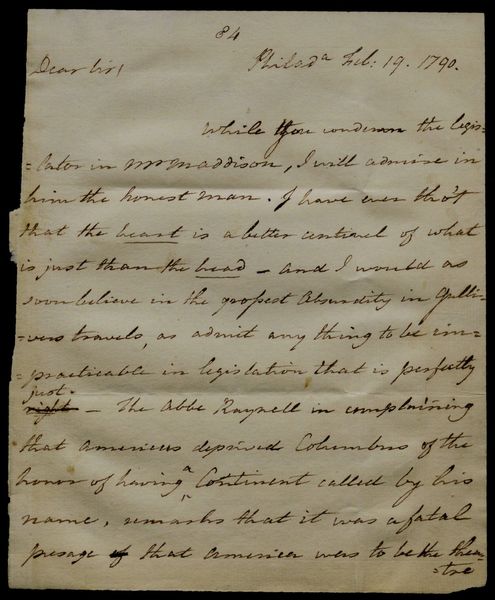 84
Philad.a Feb: 19. 1790.
Dear Sir/
While you condemn the legis-
-lator in Mr Maddison, I will admire in
him the honest man. I have ever tho't
that the heart is a better centinel of what
is just than the head – and I would as
soon believe in the grossest Absurdity in Gulli-
-vers travels, as admit any thing to be im-
-practicable in legislation that is perfectly
just.
right – The Abbe Raynell in complaining
that Americus deprived Columbus of the
honor of having a Continent called by his
name, remarks that it was a fatal
presage of that America was to be the thea-
-tre